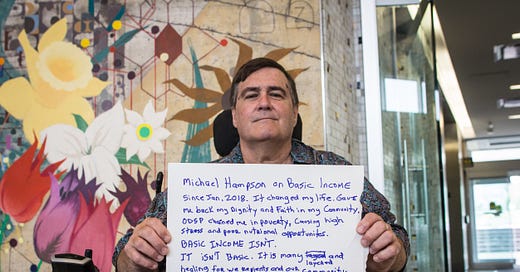 Michael Hampson on Basic Income
Since Jan, 2018. It changed my life. Gave
me back my Dignity and Faith in my Community.
ODSP chained me in poverty, Causing high
stress and poor nutritional opportunities.
BASIC INCOME ISN'T.
IT ISN'T BASIC. It is many
layered
healing for we recipients and our Community